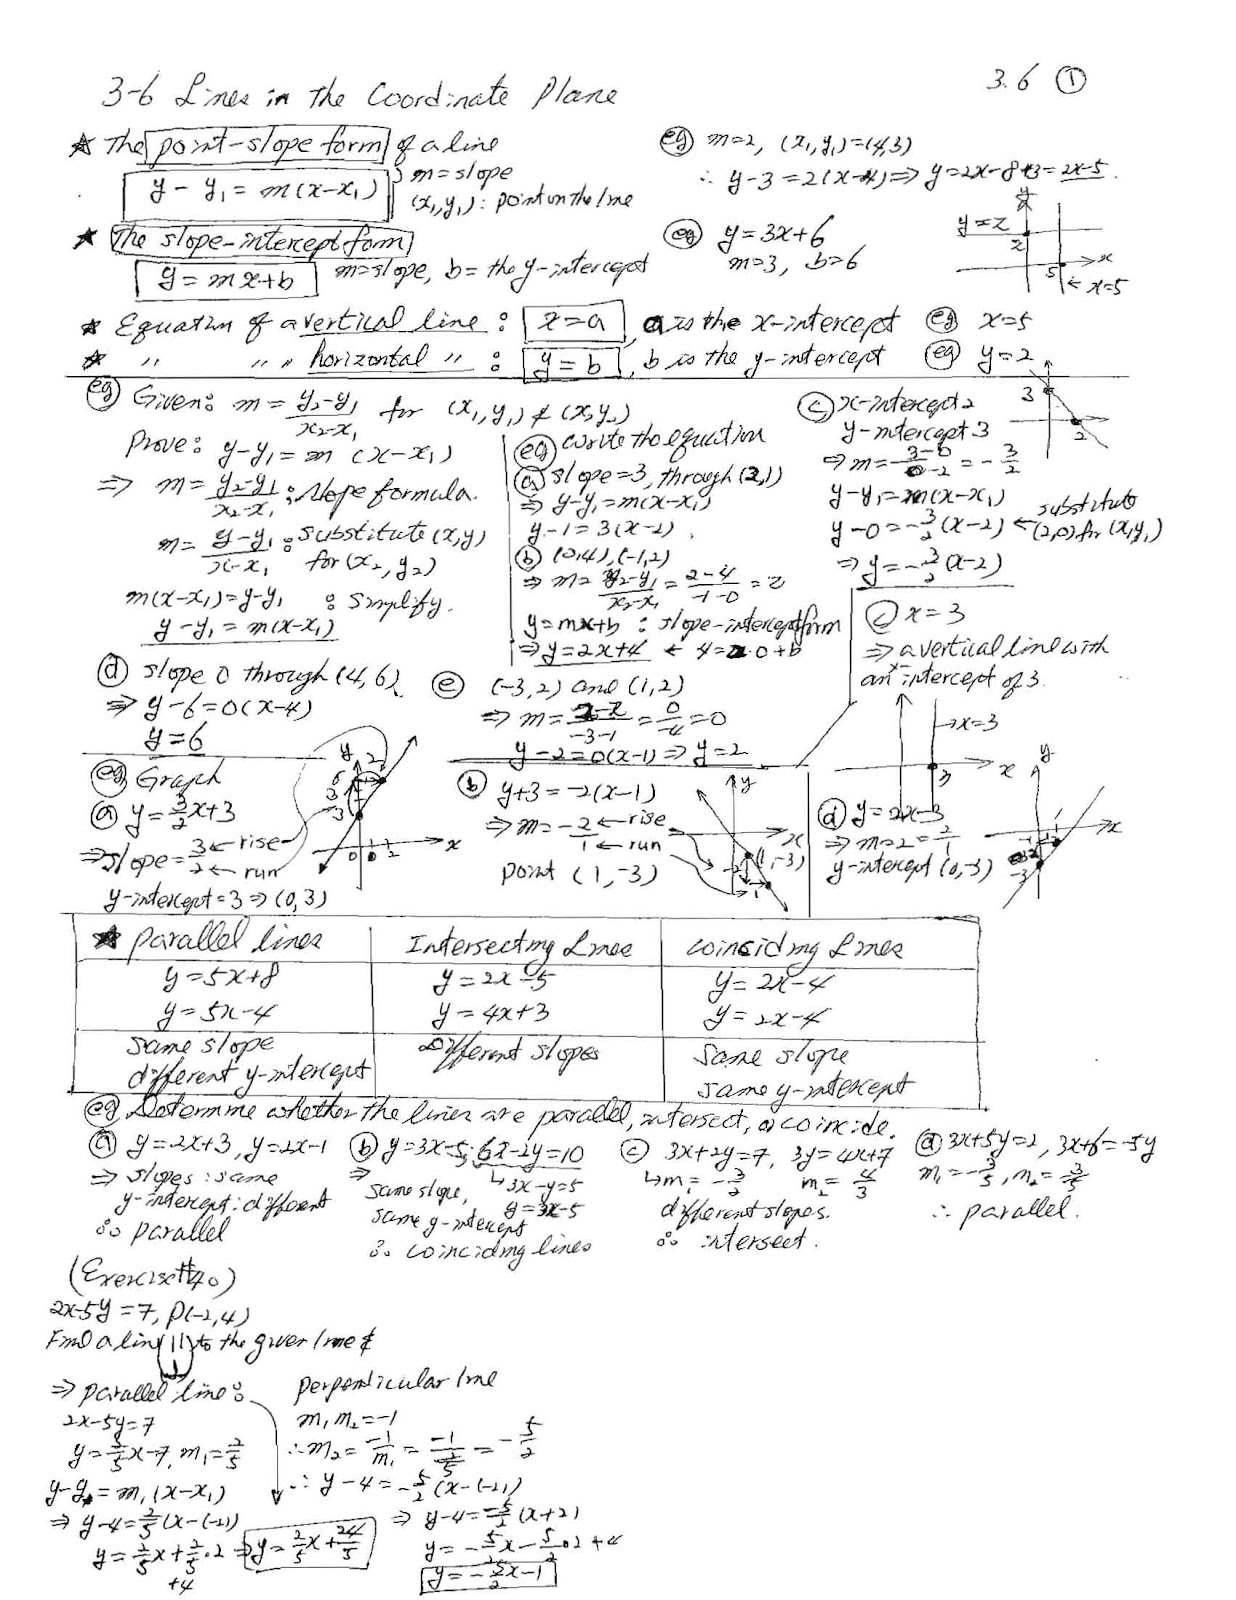 3-6 Lines in the Coordinate Plane
3.6 ①
★ The point-slope form of a line
y - y₁ = m(x-x₁)
m = slope
(x₁,y₁): point on the line
eg m=2, (x₁,y₁)=(4,3)
∴ y-3 = 2(x-4) ⇒ y=2x-8+3=2x-5
★ The slope-intercept form
y = mx+b
m=slope, b= the y-intercept
eg y=3x+6
m=3, b=6
y
y=2
2
5
x
← x=5
★ Equation of a vertical line : x=a, a is the x-intercept eg x=5
★ " " " horizontal " : y=b, b is the y-intercept eg y=2
eg Given: m = (y₂-y₁)/(x₂-x₁) for (x₁,y₁) & (x₂,y₂)
Prove: y-y₁ = m (x-x₁)
⇒ m = (y₂-y₁)/(x₂-x₁) : slope formula.
m = (y-y₁)/(x-x₁) : substitute (x,y)
for (x₂,y₂)
m(x-x₁)=y-y₁ : simplify.
y-y₁ = m(x-x₁)
eg write the equation
ⓐ slope=3, through (2,1)
⇒ y-y₁=m(x-x₁)
y-1=3(x-2)
ⓑ (0,4), (-1,2)
⇒ m= (y₂-y₁)/(x₂-x₁) = (2-4)/(-1-0) = 2
y=mx+b : slope-intercept form
⇒ y=2x+4 ← 4=2·0+b
ⓒ x-intercept 2
y-intercept 3
⇒ m= (3-0)/(0-2) = -3/2
y-y₁=m(x-x₁)
y-0=-3/2(x-2) ← substitute
(2,0) for (x₁,y₁)
⇒ y=-3/2(x-2)
3
2
ⓓ slope 0 through (4,6)
⇒ y-6=0(x-4)
y=6
ⓔ (-3,2) and (1,2)
⇒ m= (2-2)/(-3-1) = 0/-4 = 0
y-2=0(x-1) ⇒ y=2
ⓒ x=3
⇒ a vertical line with
an x-intercept of 3.
x=3
3
x
eg Graph
ⓐ y=3/2x+3
⇒ slope= 3/2 ← rise
← run
y-intercept=3 ⇒ (0,3)
y
x
ⓑ y+3=-2(x-1)
⇒ m= -2/1 ← rise
← run
point (1,-3)
y
x
(1,-3)
ⓓ y=2x-3
⇒ m=2=2/1
y-intercept (0,-3)
y
x
-3
★ parallel lines
Intersecting Lines
coinciding Lines
y=5x+8
y=2x-5
y=2x-4
y=5x-4
y=4x+3
y=2x-4
same slope
different y-intercept
Different slopes
Same slope
same y-intercept
eg Determine whether the lines are parallel, intersect, or coincide.
ⓐ y=2x+3, y=2x-1
⇒ slopes: same
y-intercept: different
∴ parallel
ⓑ y=3x-5; 6x-2y=10
↳ 3x-y=5
y=3x-5
⇒ same slope,
same y-intercept
∴ coinciding lines
ⓒ 3x+2y=7, 3y=4x+7
↳ m₁=-3/2 m₂=4/3
different slopes.
∴ intersect.
ⓓ 3x+5y=2, 3x+6=-5y
m₁=-3/5, m₂=-3/5
∴ parallel.
(Exercise #40)
2x-5y=7, P(-2,4)
Find a line (11) to the given line &
⇒ parallel line:
2x-5y=7
y=2/5x-7, m₁=2/5
y-y₁=m₁(x-x₁)
⇒ y-4=2/5(x-(-2))
y=2/5x+2/5·2
+4
⇒ y=2/5x+24/5
perpendicular line
m₁m₂=-1
∴ m₂= -1/m₁ = -1/(2/5) = -5/2
∴ y-4=-5/2(x-(-2))
⇒ y-4=-5/2(x+2)
y=-5/2x-5/2·2+4
y=-5/2x-1